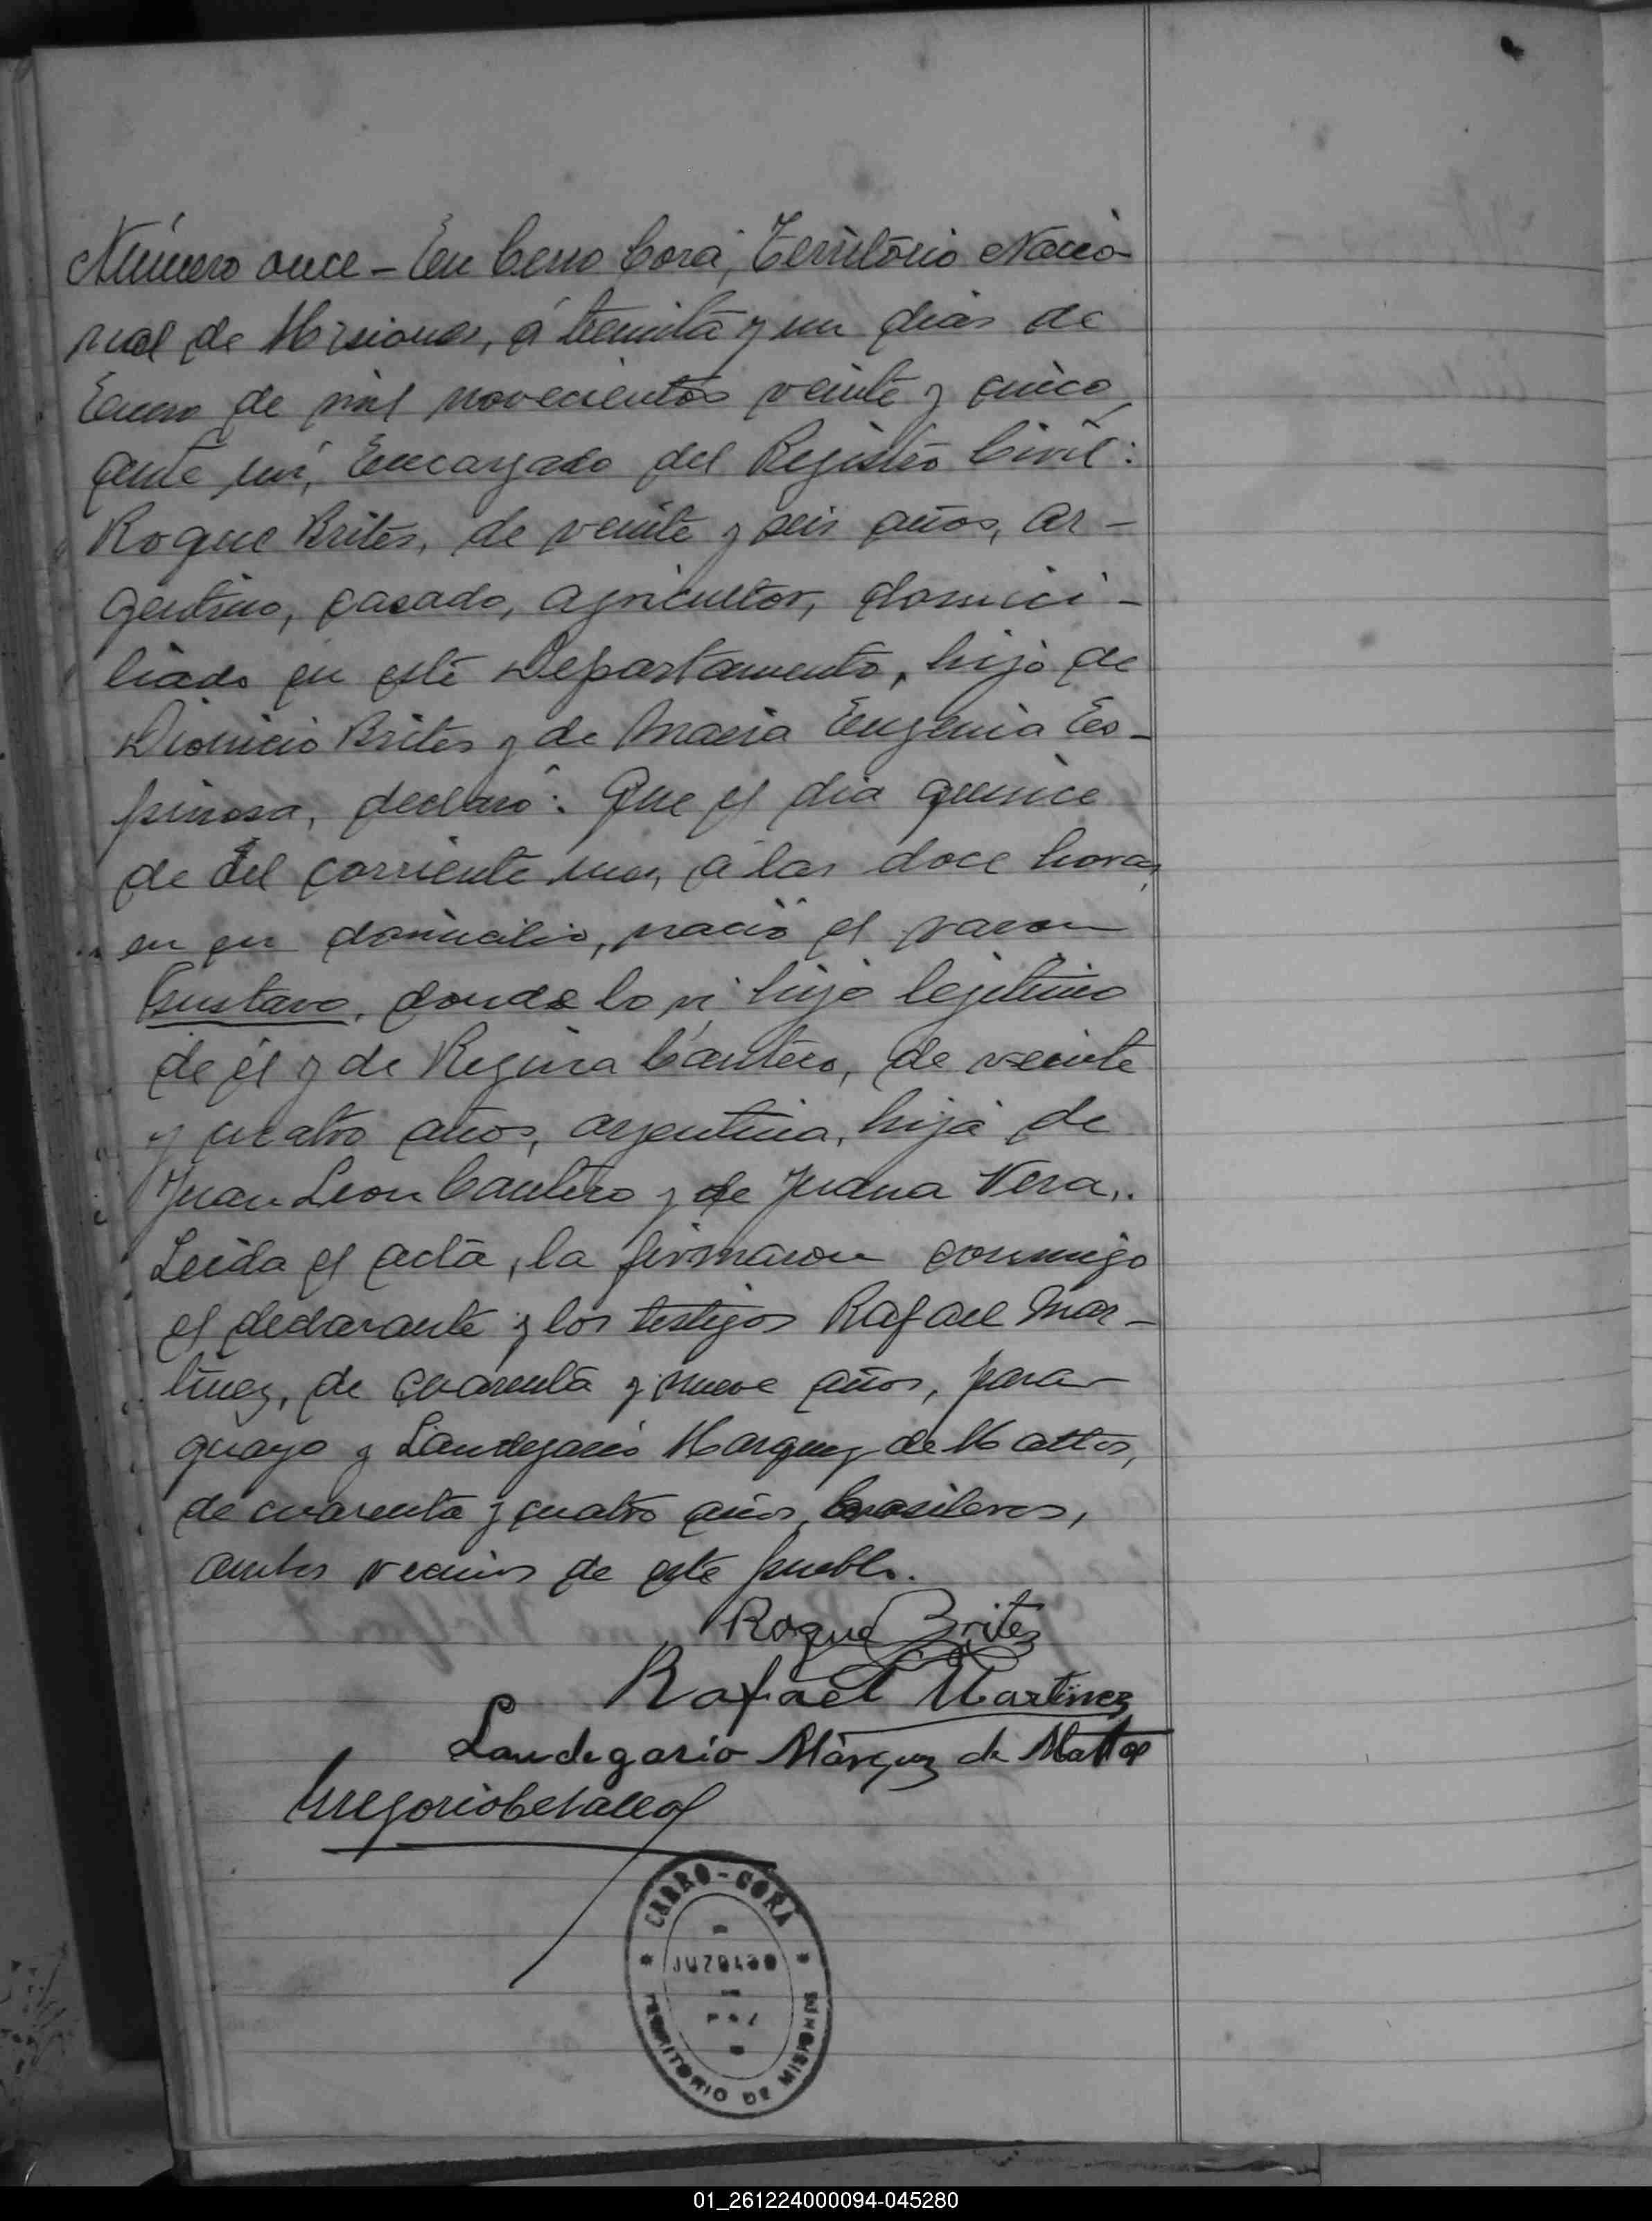 Número once - En Cerro Corá, Território Nacio-
nal de Misiones, á treinta y un dias de
Enero de mil novecientos veinte y cinco,
ante mí, Encargado del Registro Civil:
Roque Brites, de veinte y seis años, ar-
gentino, casado, agricultor, domici-
liado en este Departamento, hijo de
Dionicio Brites y de Maria Eugenia Es-
pinosa, declaró: Que el dia quince
de del corriente mes, á las doce horas,
en su domicilio, nació el varon
Gustavo, donde lo vi, hijo legitimo
de él y de Regina Cantero, de veinte
y cuatro años, argentina, hija de
Juan Leon Cantero y de Juana Vera,.
Leida el acta, la firmaron conmigo
el declarante y los testigos Rafael Mar-
tinez, de cuarenta y nueve años, para-
guayo y Landegario Marquez de Mattos,
de cuarenta y cuatro años, brasileros,
ambos vecinos de este pueblo.
Roque Brites
Rafael Martinez
Landegario Márquez de Mattos
Gregorio
CERRO-CORÁ
JUZGADO
DE
PAZ
TERRITORIO DE MISIONES
01_261224000094-045280